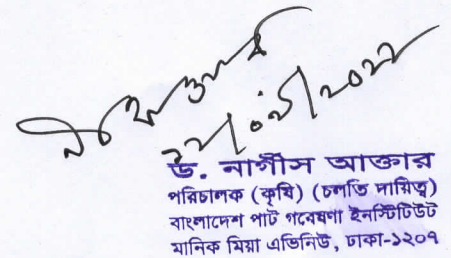 ড. নার্গীস আক্তার
পরিচালক (কৃষি) (চলতি দায়িত্ব)
বাংলাদেশ পাট গবেষণা ইনস্টিটিউট
মানিক মিয়া এভিনিউ, ঢাকা-১২০৭